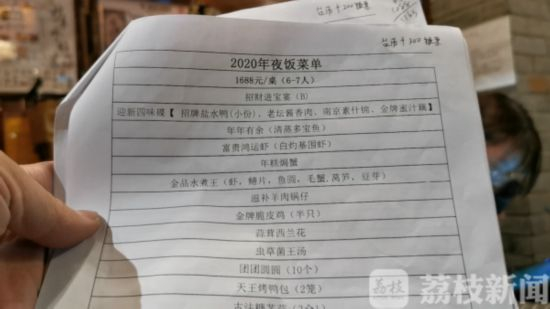 2020年夜饭菜单
1688元/桌(6-7人)
招财进宝宴(B)
迎新四味碟【招牌盐水鸭(小份)、老坛酱香肉、南京素什锦、金牌蜜汁藕】
年年有余(清蒸多宝鱼)
富贵鸿运虾(白灼基围虾)
年糕焗蟹
金品水煮王(虾,鳝片,鱼圆,毛蟹,莴笋,豆芽)
滋补羊肉锅仔
金牌脆皮鸡(半只)
蒜茸西兰花
虫草菌王汤
团团圆圆(10个)
天王烤鸭包(2笼)
荔枝
荔枝新闻